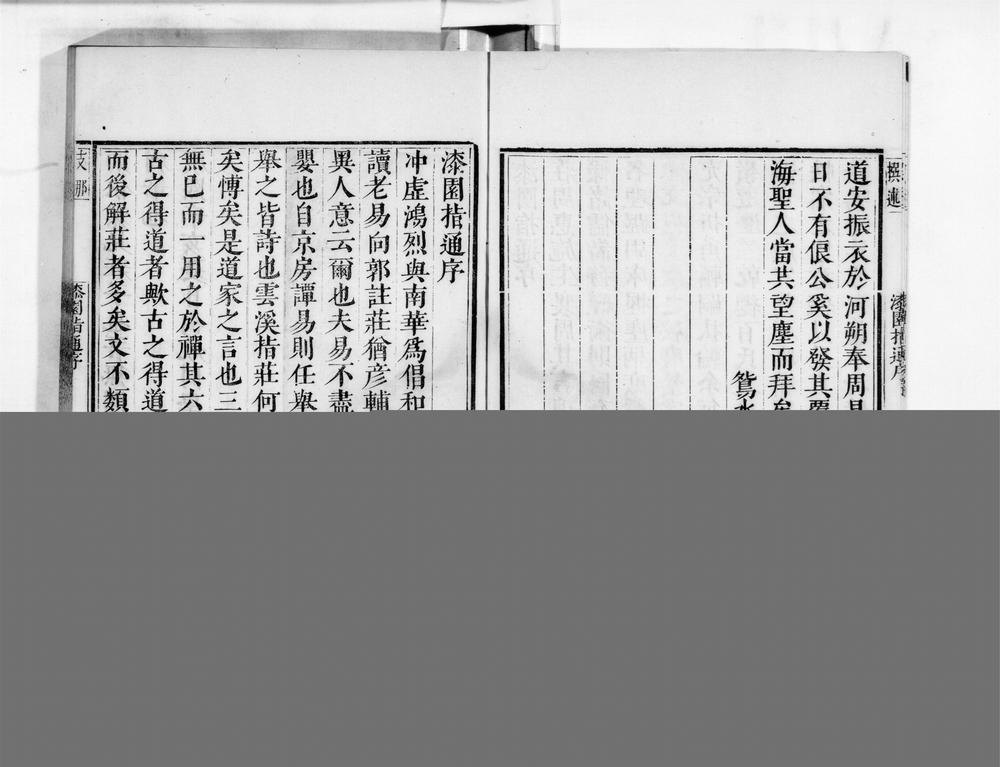 道安振衣於河朔奉周
日不有佷公奚以發其
海聖人當共望塵而拜
鴛水
漆園指通序
漆園指通序
冲虛鴻烈與南華爲倡和
讀老易向郭註莊猶彦輔
異人意云爾也夫易不盡
嬰也自京房譚易則任舉
舉之皆詩也雲溪指莊何
矣慱矣是道家之言也三
無已而一用之於禪其六
古之得道者歟古之得道
而後解莊者多矣文不類
支那
漆園指通序